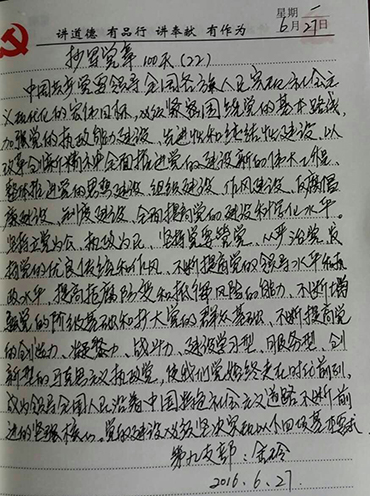 讲道德 有品行 讲奉献 有作为
星期一
6月27日
抄写党章100天(22)
中国共产党要领导全国各族人民实现社会主
义现代化的宏伟目标,必须紧密围绕党的基本路线,
加强党的执政能力建设、先进性和纯洁性建设,以
改革创新精神全面推进党的建设新的伟大工程,
整体推进党的思想建设、组织建设、作风建设、反腐倡
廉建设、制度建设,全面提高党的建设科学化水平。
坚持立党为公、执政为民,坚持党要管党、从严治党,发
扬党的优良传统和作风,不断提高党的领导水平和执
政水平,提高拒腐防变和抵御风险的能力,不断增
强党的阶级基础和扩大党的群众基础,不断提高党
的创造力、凝聚力、战斗力,建设学习型、服务型、创
新型的马克思主义执政党,使我们党始终走在时代前列,
成为领导全国人民沿着中国特色社会主义道路不断前
进的坚强核心。党的建设必须坚决实现以下四项基本要求
第九支部:
2016.6.27.